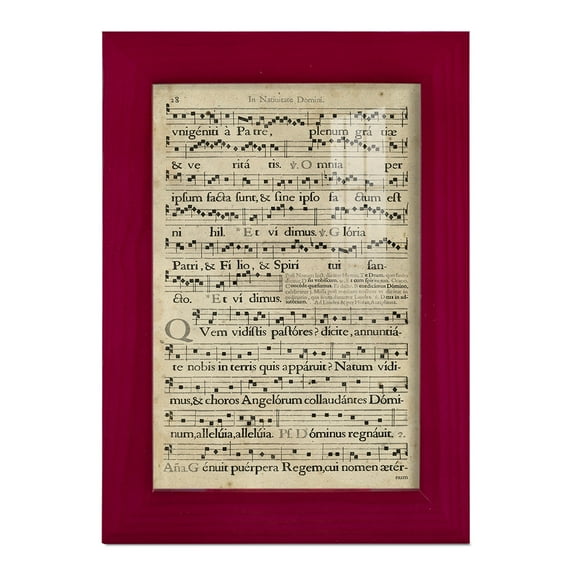 28 In Nativitate Domini.
vnigéniti à Patre, plenum gratiæ
& veritátis. ℣. Omnia per
ipsum facta sunt, & sine ipso factum est
nihil. *Et vídimus. ℣. Glória
Patri, & Fílio, & Spirítui san-
cto. *Et vidimus.
QVem vidistis pastóres? dícite, annuntiá-
te nobis in terris quis appáruit? Natum vídi-
mus, & choros Angelórum collaudántes Dómi-
num, allelúia, allelúia. Ps. Dóminus regnáuit. 2.
Aña. Génuit puérpera Regem, cui nomen ætér-
num